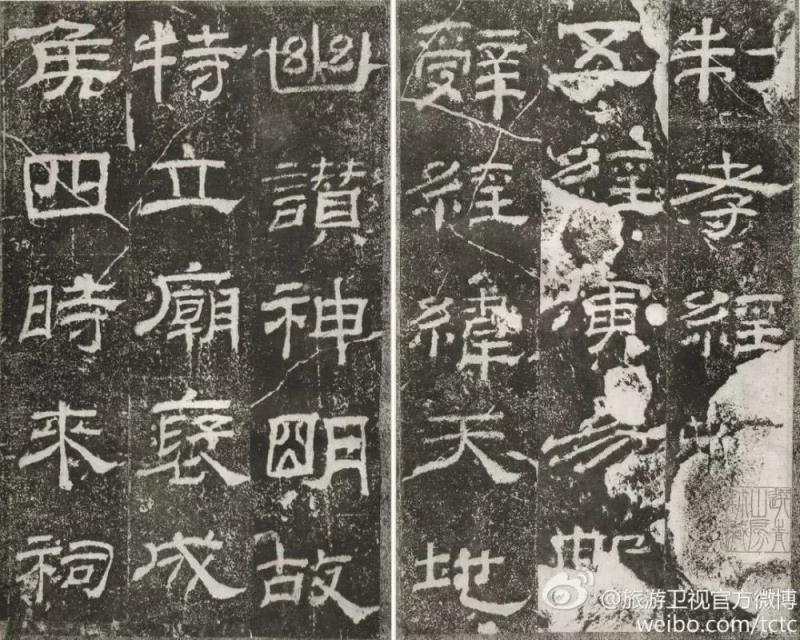 制孝經
五經演易
辭經緯天地
幽讚神明故
特立廟褒成
侯四時來祠
@旅游卫视官方微博
weibo.com/tctc